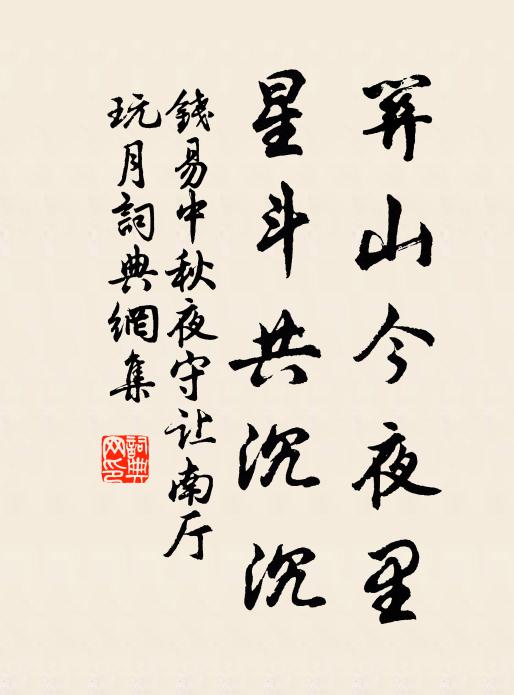 山今夜里
星斗共沉沉
錢易中秋夜守让南厅
玩月詞典網集
詞典网印